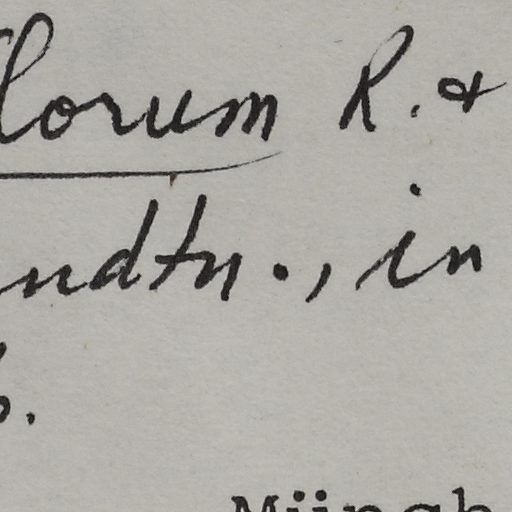 lorum R. &
ndtn., in
b.
Müngh